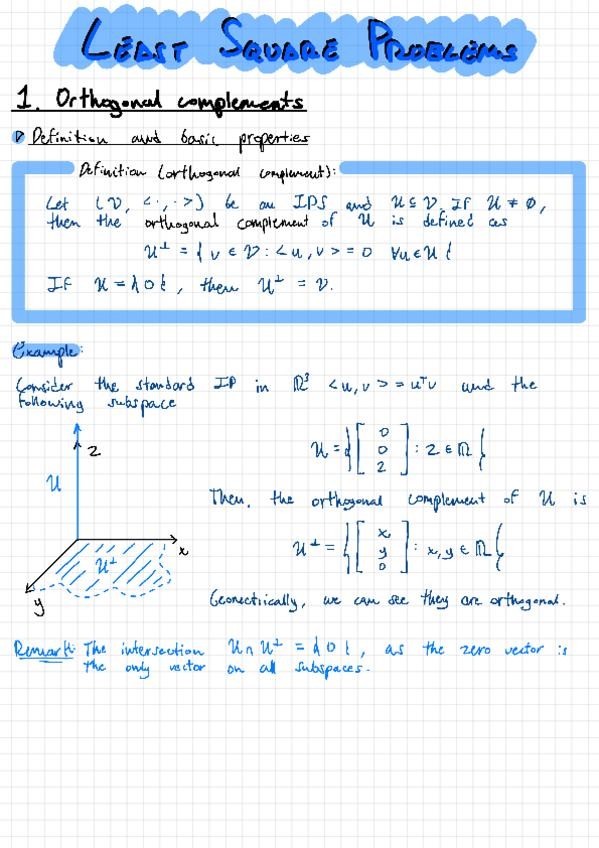 LEAST SQUARE PROBLEMS
1. Orthogonal complements
Definition and basic properties
Definition (orthogonal complement):
Let (V, <·,·>) be an IPS and U ⊆ V. If U ≠ ∅,
then the orthogonal complement of U is defined as
U⊥ = { v ∈ V : <u, v> = 0 ∀u ∈ U }
If U = {0}, then U⊥ = V.
Example:
Consider the standard IP in ℝ³ <u, v> = uᵀv and the
following subspace
z
U
x
U⊥
y
U = { [ 0 0 z ] : z ∈ ℝ }
Then, the orthogonal complement of U is
U⊥ = { [ x y 0 ] : x, y ∈ ℝ }
Geonectrically, we can see they are orthogonal.
Remark: The intersection U ∩ U⊥ = {0}, as the zero vector is
the only vector on all subspaces.